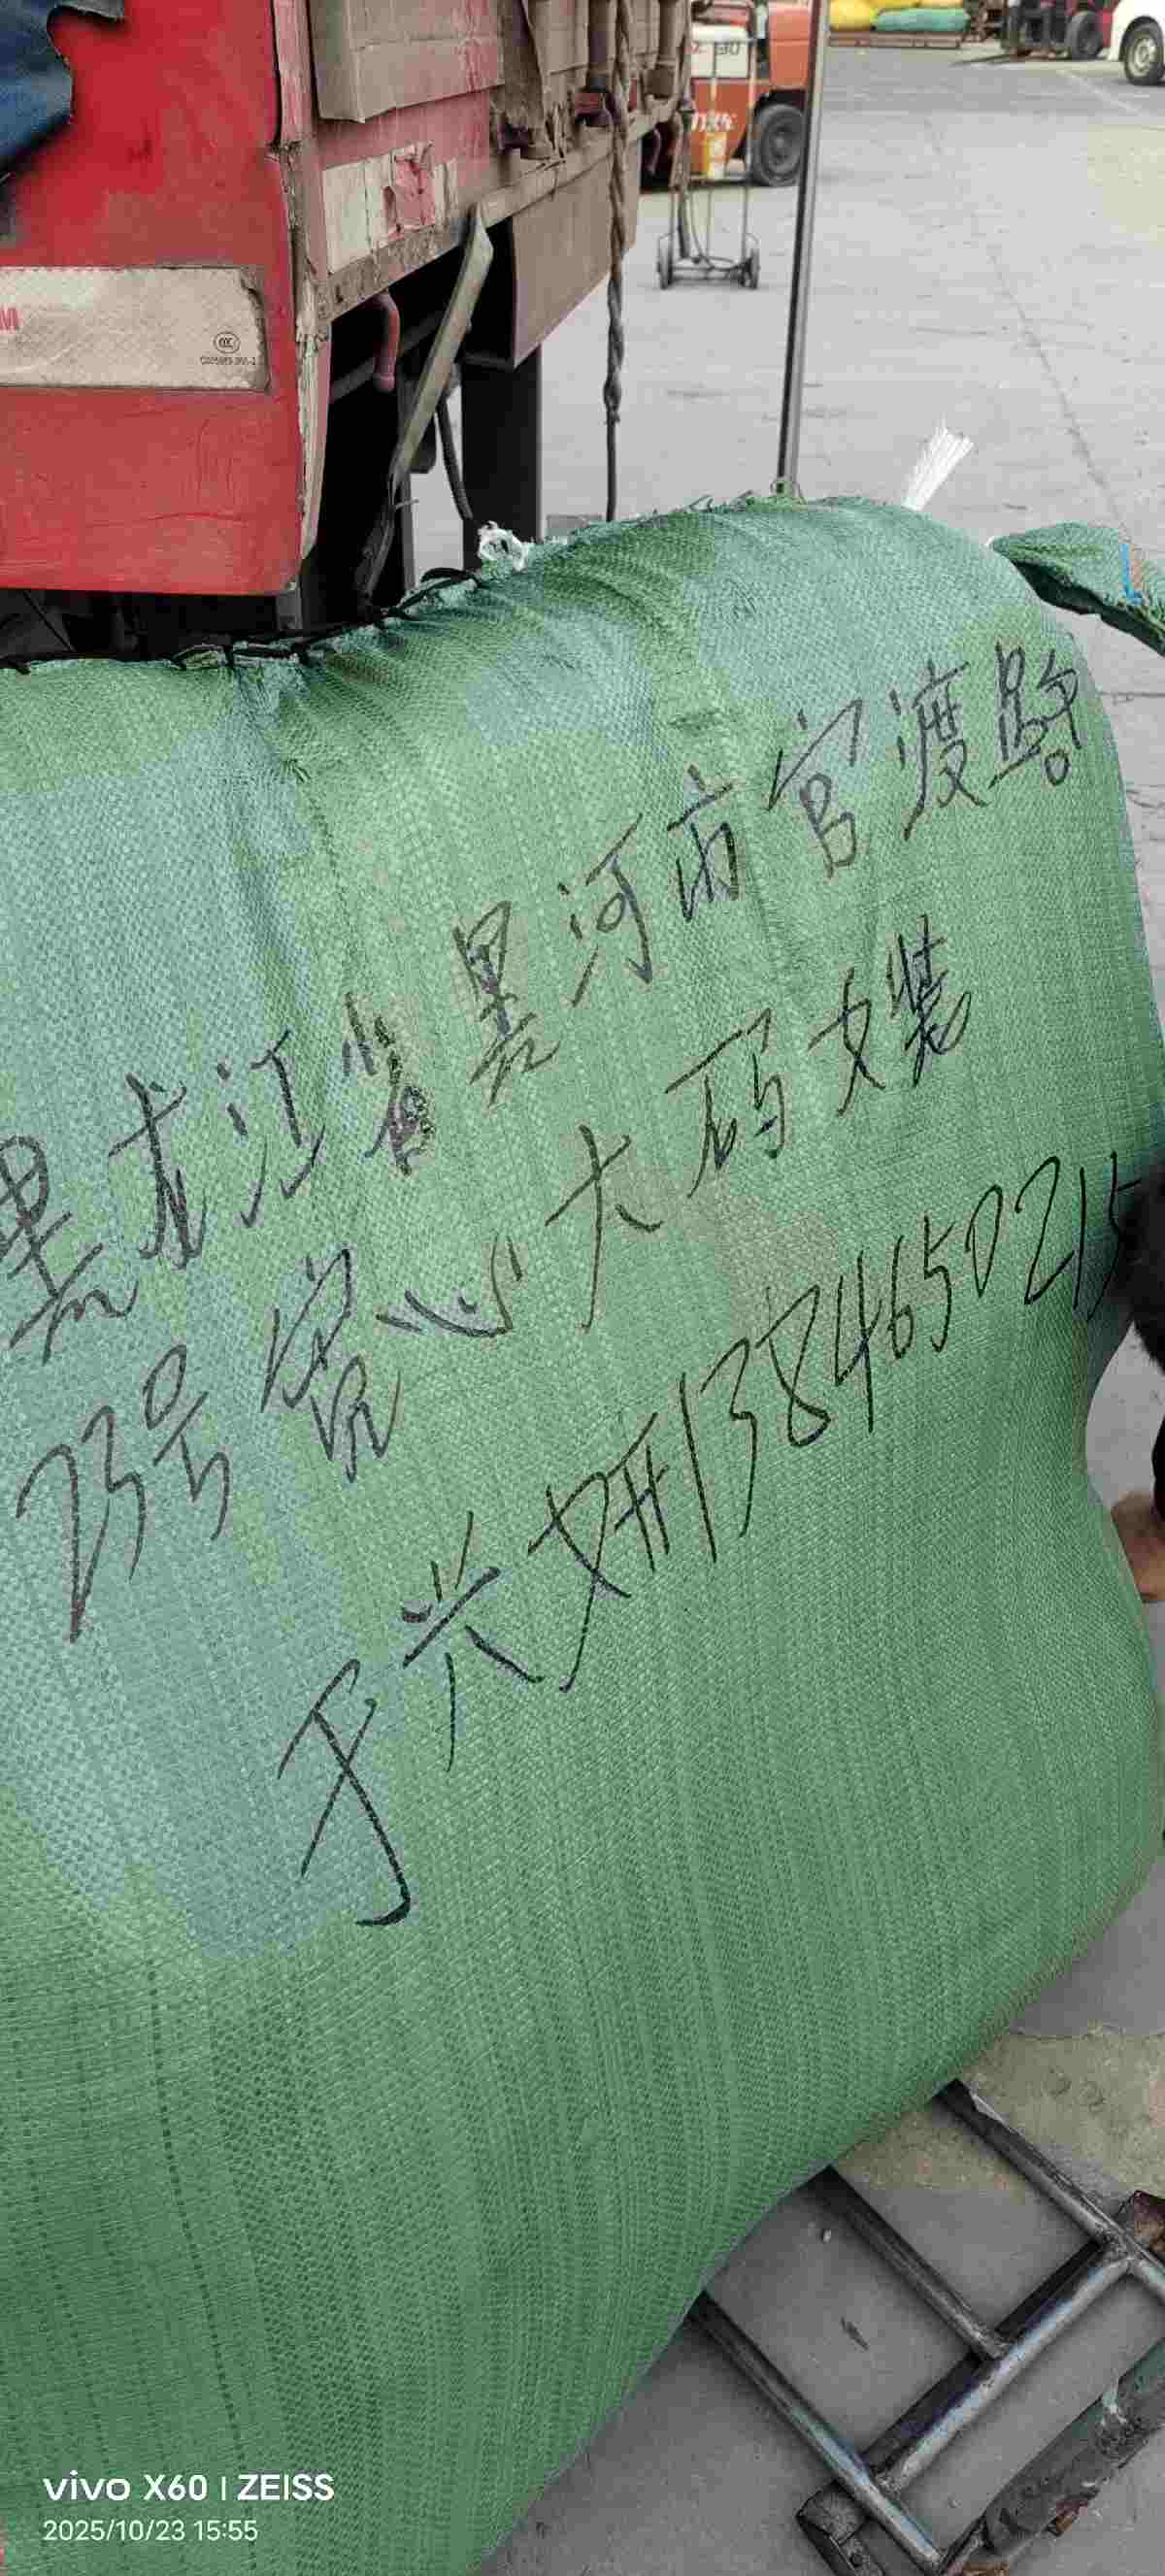 黑龙江省黑河市官渡路
23号宽心大码女装
于兴妍1384650215
vivo X60 | ZEISS
2025/10/23 15:55